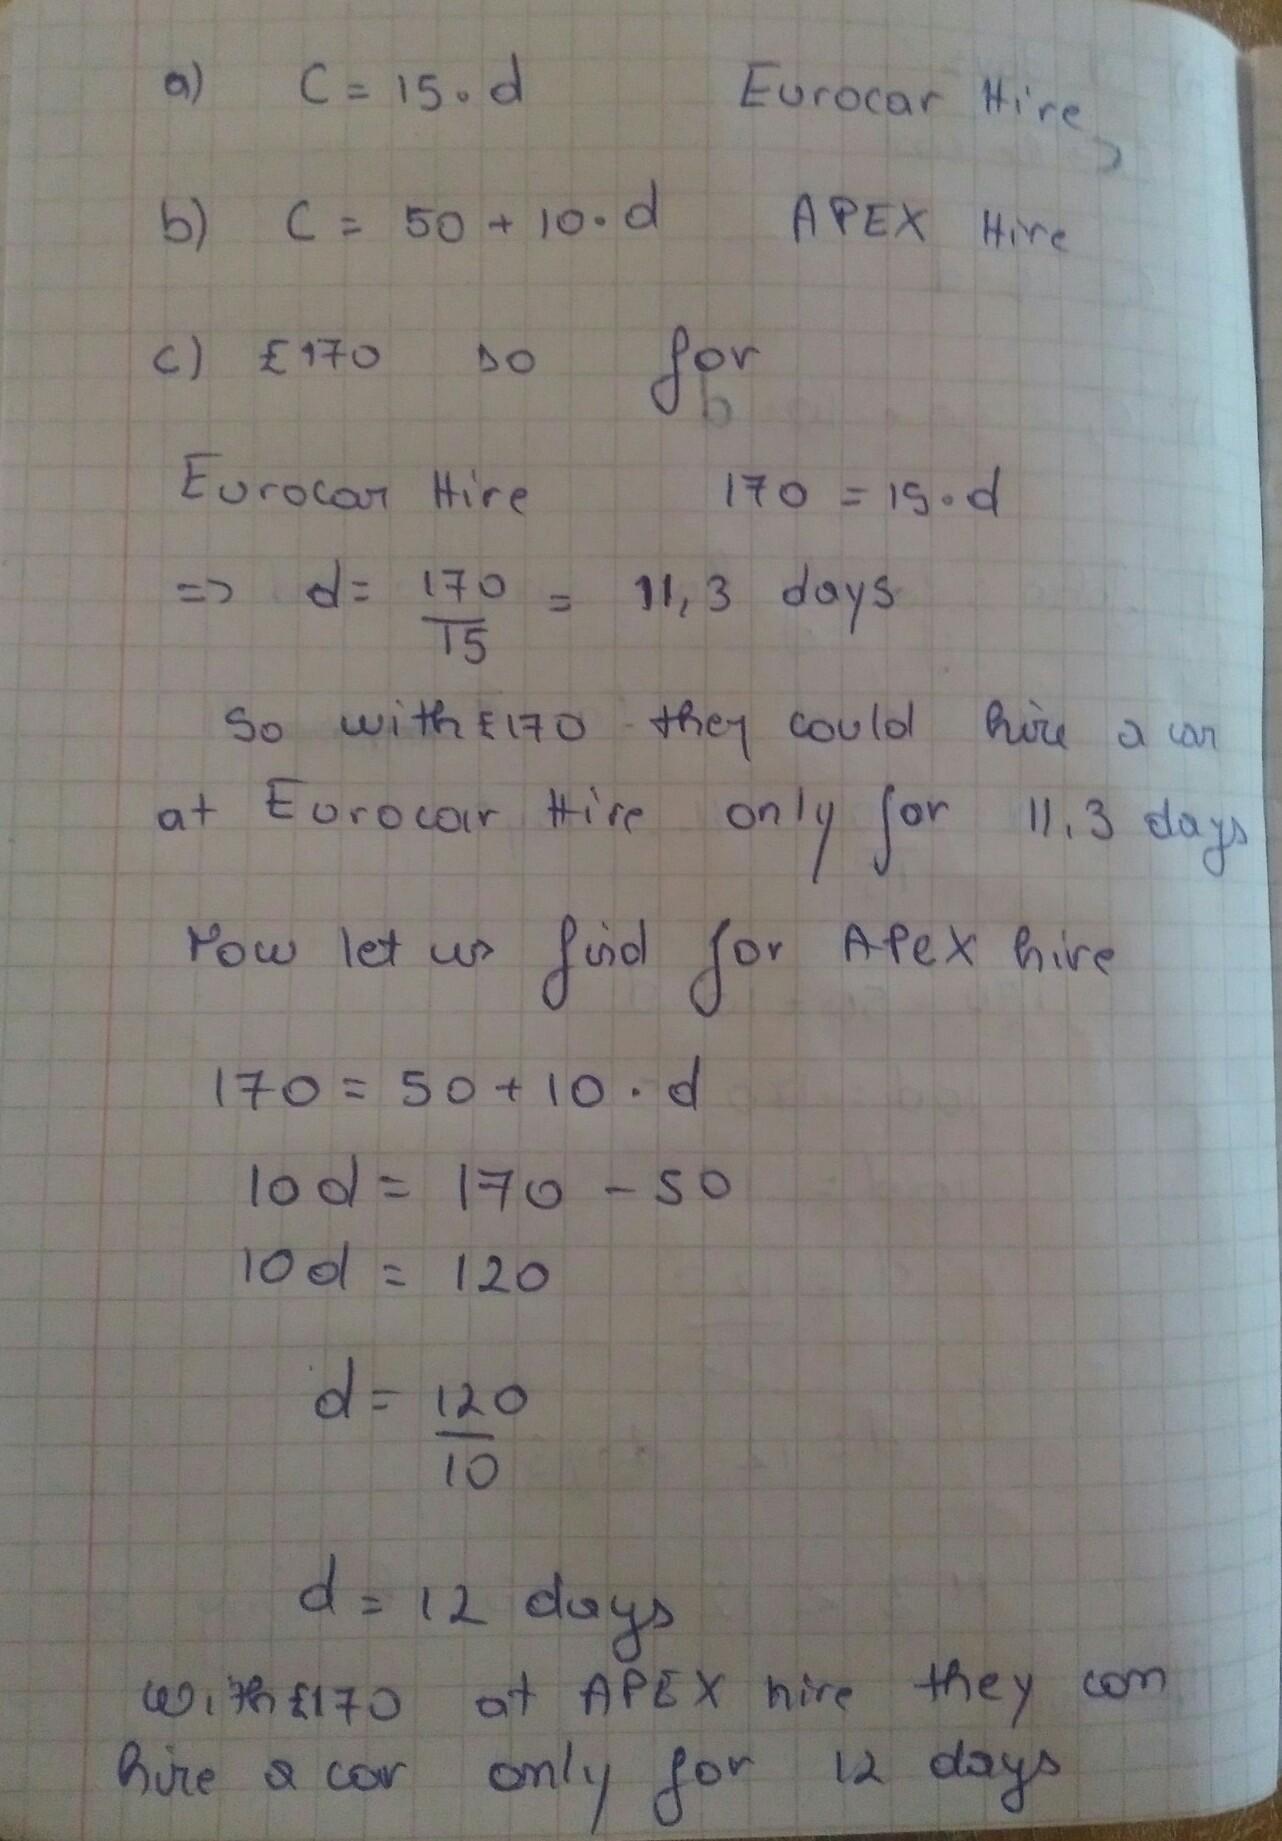 a) C = 15 . d Eurocar Hire
b) C = 50 + 10 . d APEX Hire
c) £170 so for
Eurocar Hire 170 = 15 . d
=> d = 170/15 = 11,3 days
So with £170 they could hire a car
at Eurocar Hire only for 11,3 days
Now let us find for APEX hire
170 = 50 + 10 . d
10 d = 170 - 50
10 d = 120
d = 120/10
d = 12 days
With £170 at APEX hire they can
hire a car only for 12 days